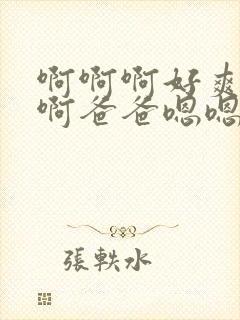 啊啊啊好爽
啊爸爸嗯嗯
張軼水